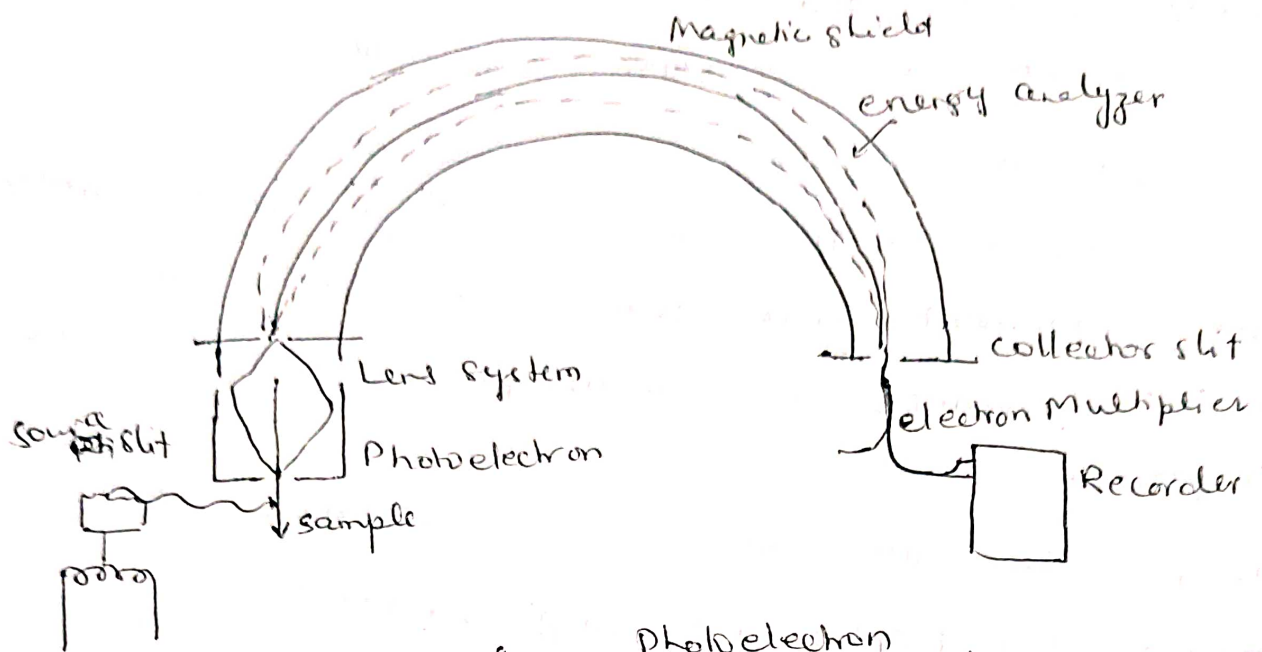 Magnetic shield
energy analyzer
Lens system
collector slit
source slit
electron Multiplier
Photoelectron
Recorder
sample
Photoelectron